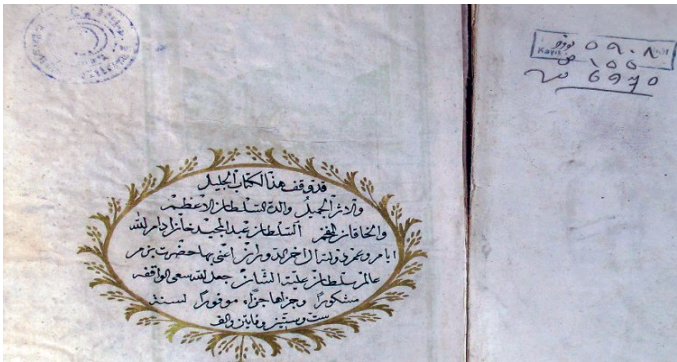 قد وقف هذا الكتاب الجليل
والاثر الجميل والدة السلطان الاعظم
والخاقان المفخم السلطان عبد المجيد خان ادام الله
ايام عمره ودولته الى اخر الدوران اعنى بها حضرت بزم
عالم سلطان علية الشان جعل الله سعى الواقفه
مشكورا وجزاها جزاء موفورا لسنة
ست وستين ومايتين والف
٥٩٠٨
١٥٥